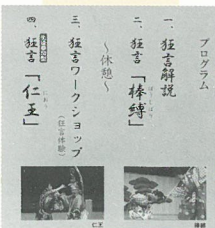 プログラム
一、狂言解説
二、狂言「棒縛」
ぼうしばり
～休憩～
三、狂言ワークショップ
（狂言体験）
四、狂言「仁王」
におう
仁王
棒縛